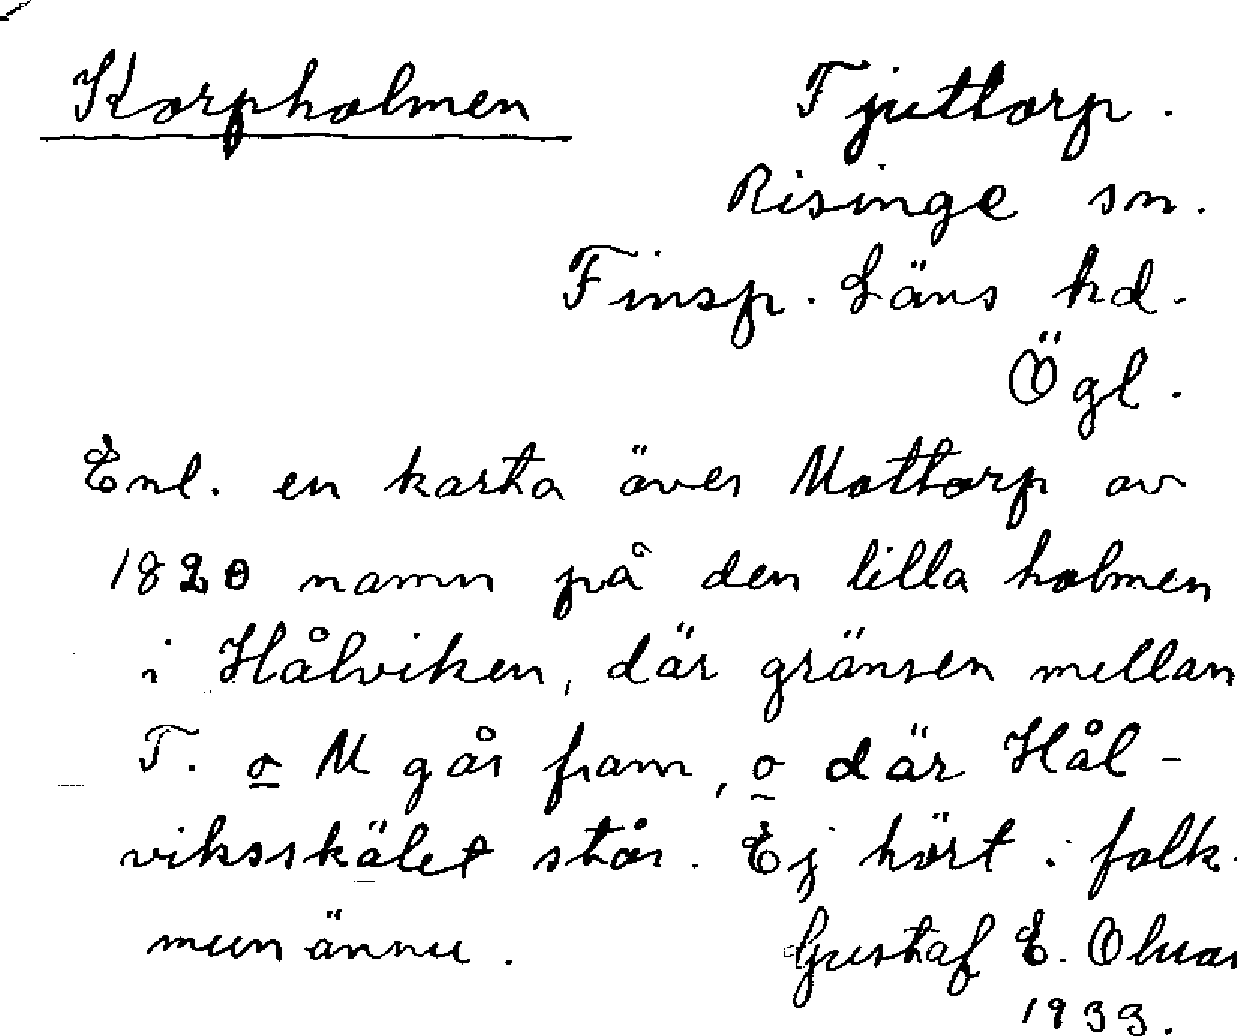 Korpholmen
Tjuttorp.
Risinge sn.
Finsp. Läns hd.
Ögl.
Enl. en karta över Mottorp av
1820 namn på den lilla holmen
i Hålviken, där gränsen mellan
T. o M går fram, o där Hål-
viksskälet står. Ej hört i folk-
mun ännu.
Gustaf E.
1933.